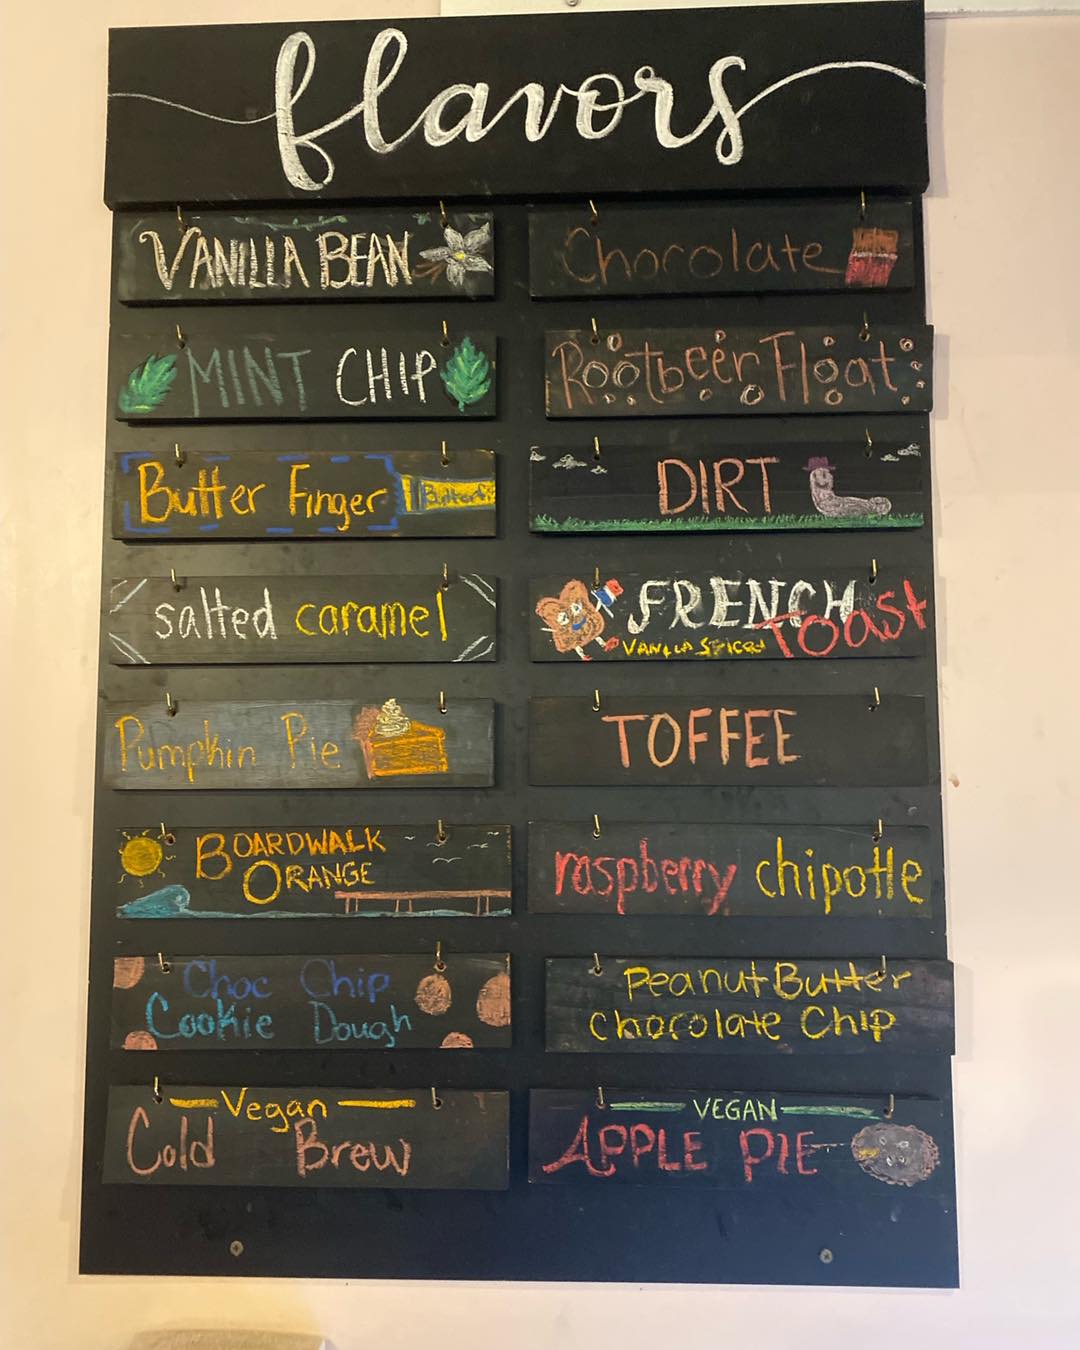 flavors
VANILLA BEAN
Chocolate
MINT CHIP
Rootbeer Float
Butter Finger
Butterfi
DIRT
salted caramel
FRENCH
Toast
VANILLA SPICED
Pumpkin Pie
TOFFEE
BOARDWALK
ORANGE
raspberry chipotle
Choc Chip
Cookie Dough
Peanut Butter
Chocolate Chip
Vegan
Cold Brew
VEGAN
APPLE PIE